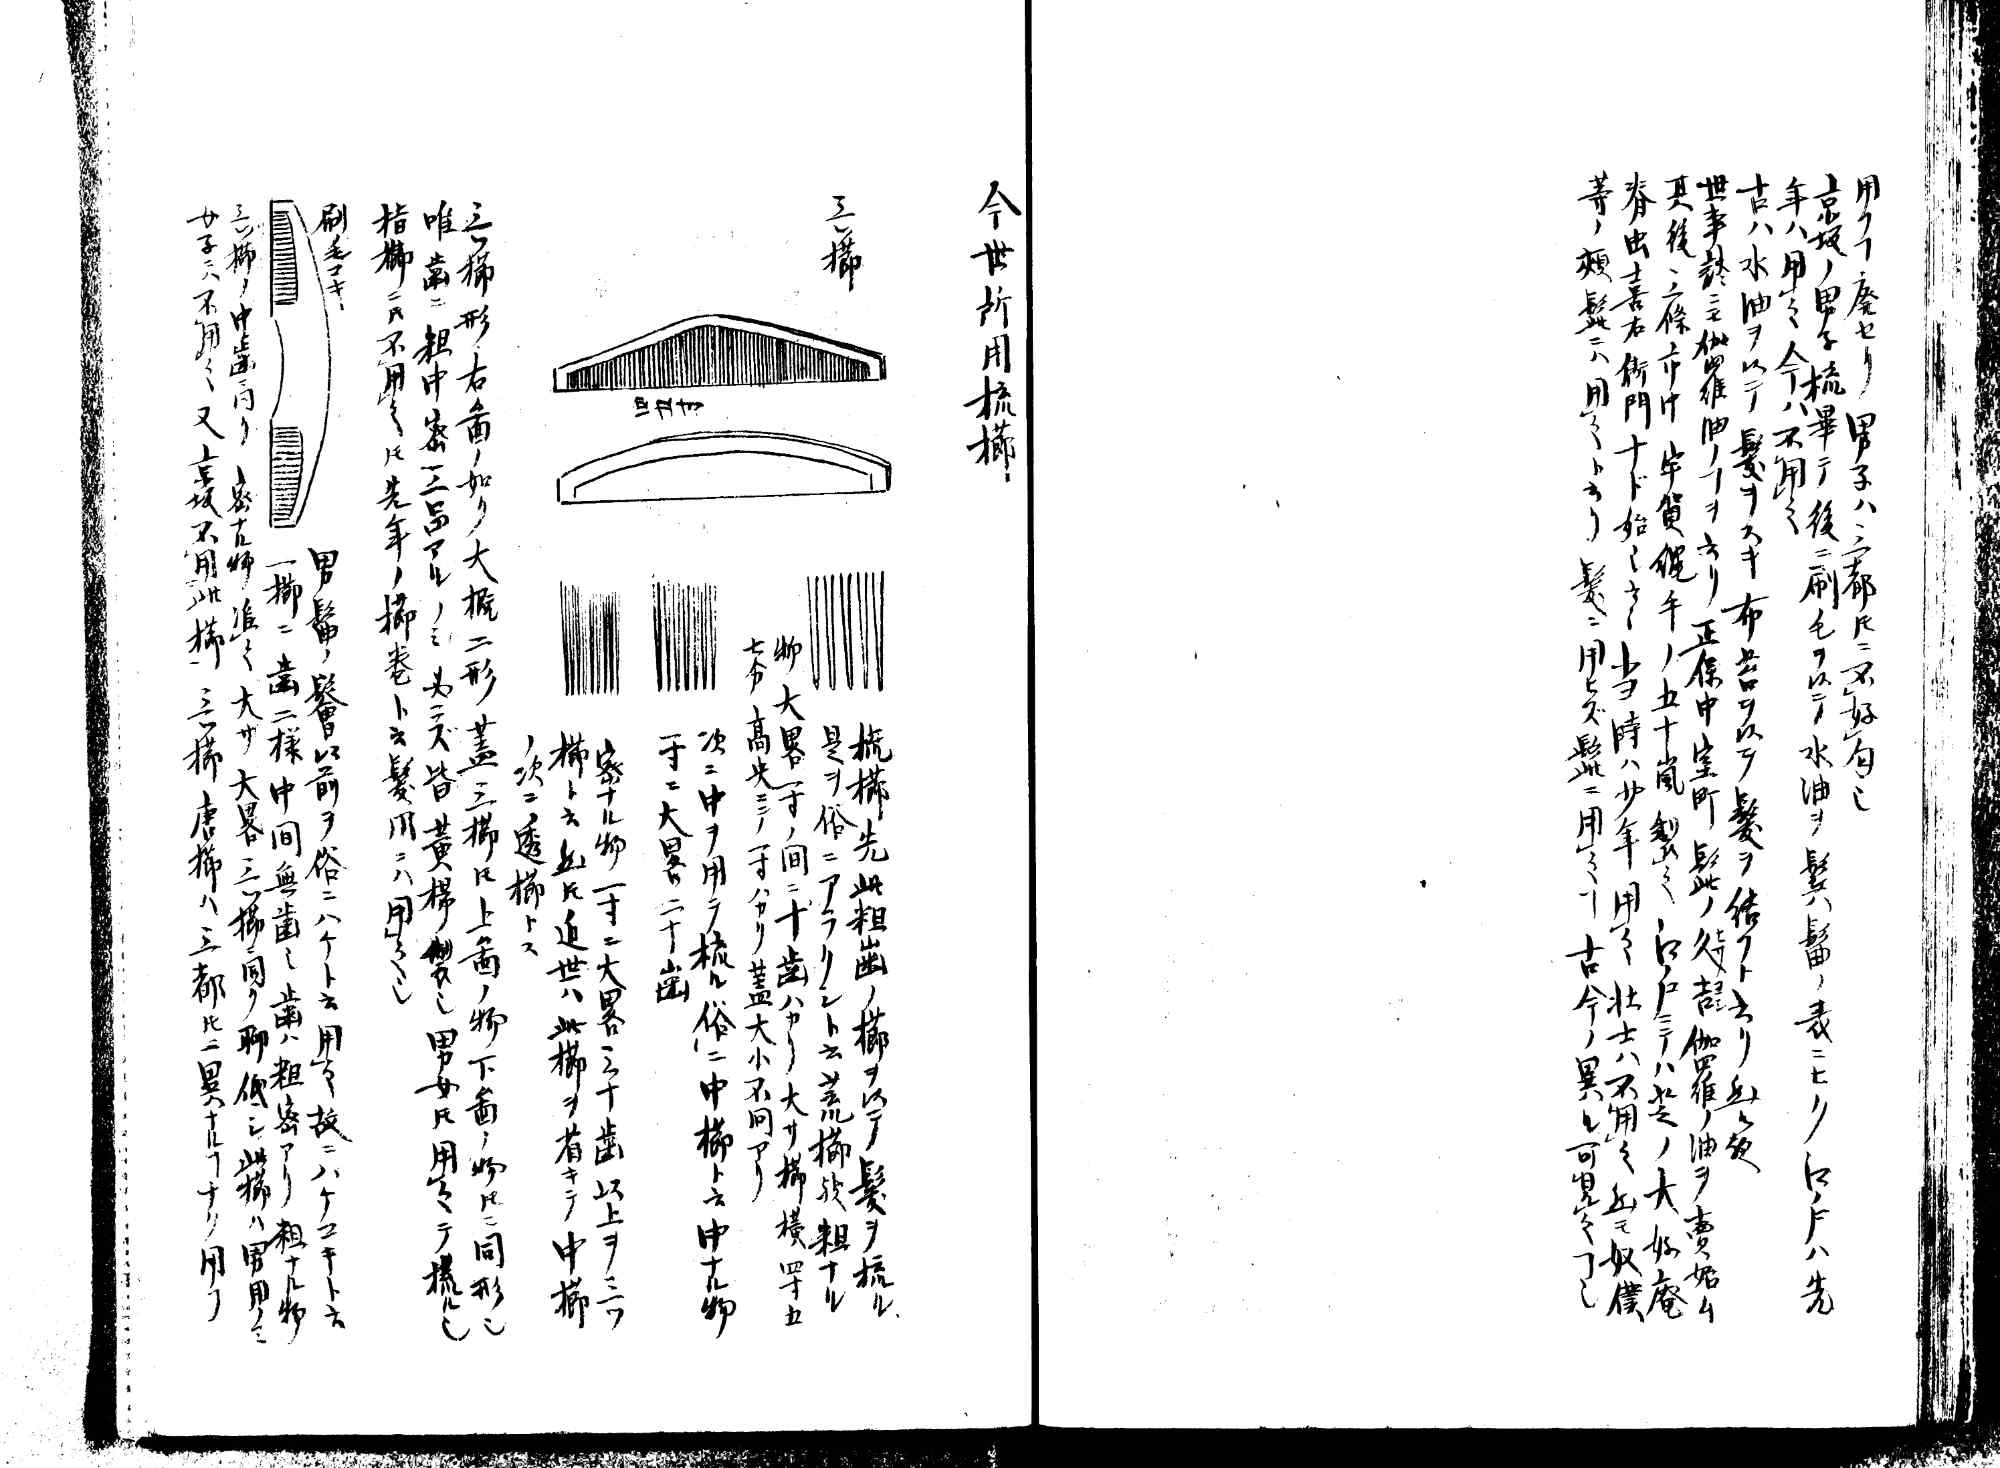 用フヿ廃セリ男子ハ三都トモニ不好匂也
京坂ノ男子梳畢テ後ニ刷毛ヲ以テ水油ヲ鬢ハ髷ノ表ニヒク江戸ハ先
年ハ用之今ハ不用之
古ハ水油ヲ以テ髪ヲスキ布苔ヲ以テ髪ヲ結フト云リ
世事談ニモ伽羅油ノヿヲ云リ正保中室町髭ノ久吉伽羅ノ油ヲ賣始ム
其後二條 縄手ノ五十嵐製之江戸ニテハ芝ノ大好庵
喜右衛門ナド始シ也当時ハ少年用之壮士ハ不用之 奴僕
等ノ頬髭ニハ用之ト云リ髪ニ用ヒズ髭ニ用之ヿ古今ノ異ル可見之ヿ也
今世所用梳櫛
三ツ櫛
梳櫛先此粗歯ノ櫛ヲ以テ髪ヲ梳ル
是ヲ俗ニアラクシト云荒櫛 粗ナル
物大畧一寸ノ間ニ十歯ハカリ大サ櫛横四寸五
七分高央ニテ一寸ハカリ蓋大小不同アリ
次ニ中ヲ用テ梳ル俗ニ中櫛ト云中ナル物
一寸ニ大畧二十歯
密ナル物一寸ニ大畧三十歯以上ヲ三ツ
櫛ト云 近世ハ此櫛ヲ省キテ中櫛
ノ次ニ透櫛トス
三ツ櫛形右圖ノ如ク大概二形蓋三櫛トモ上圖ノ物下圖ノ物トモニ同形也
唯歯ニ粗中密三品アルノミ 皆黄楊製也男女トモ用之テ梳ル也
指櫛ニハ不用之トモ先年ノ櫛巻ト云髪用ニハ用之也
刷毛コキ
男髷ノ髻以前ヲ俗ニハケト云用之故ニハケコキト云
一櫛ニ歯二様中間無歯也歯ハ粗密アリ粗ナル物
三ツ櫛ノ中歯ニ同ク密ナル物准之大サ大畧三ツ櫛ニ同ク聊低シ此櫛ハ男用ノミ
女子ニハ不用之又京坂不用此櫛三ツ櫛唐櫛ハ三都トモニ異ナルヿナク用フ